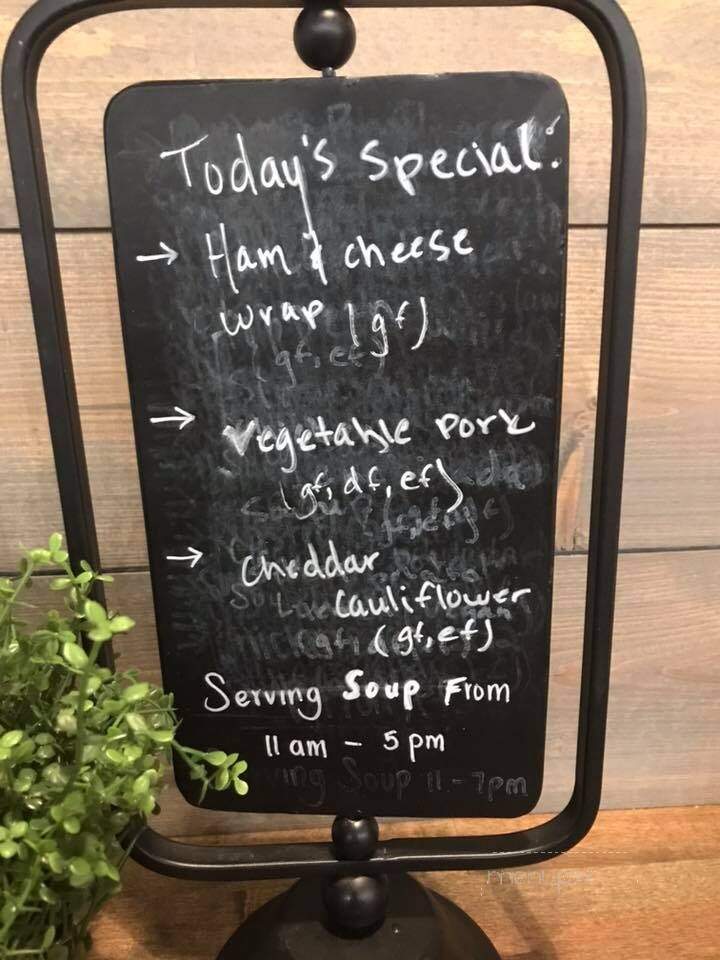 Today's Special:
→ Ham & cheese
wrap (gf)
→ Vegetable pork
(gf, df, ef)
→ Cheddar
Cauliflower
(gf, ef)
Serving Soup From
11 am - 5 pm
ing Soup 11 - 7pm